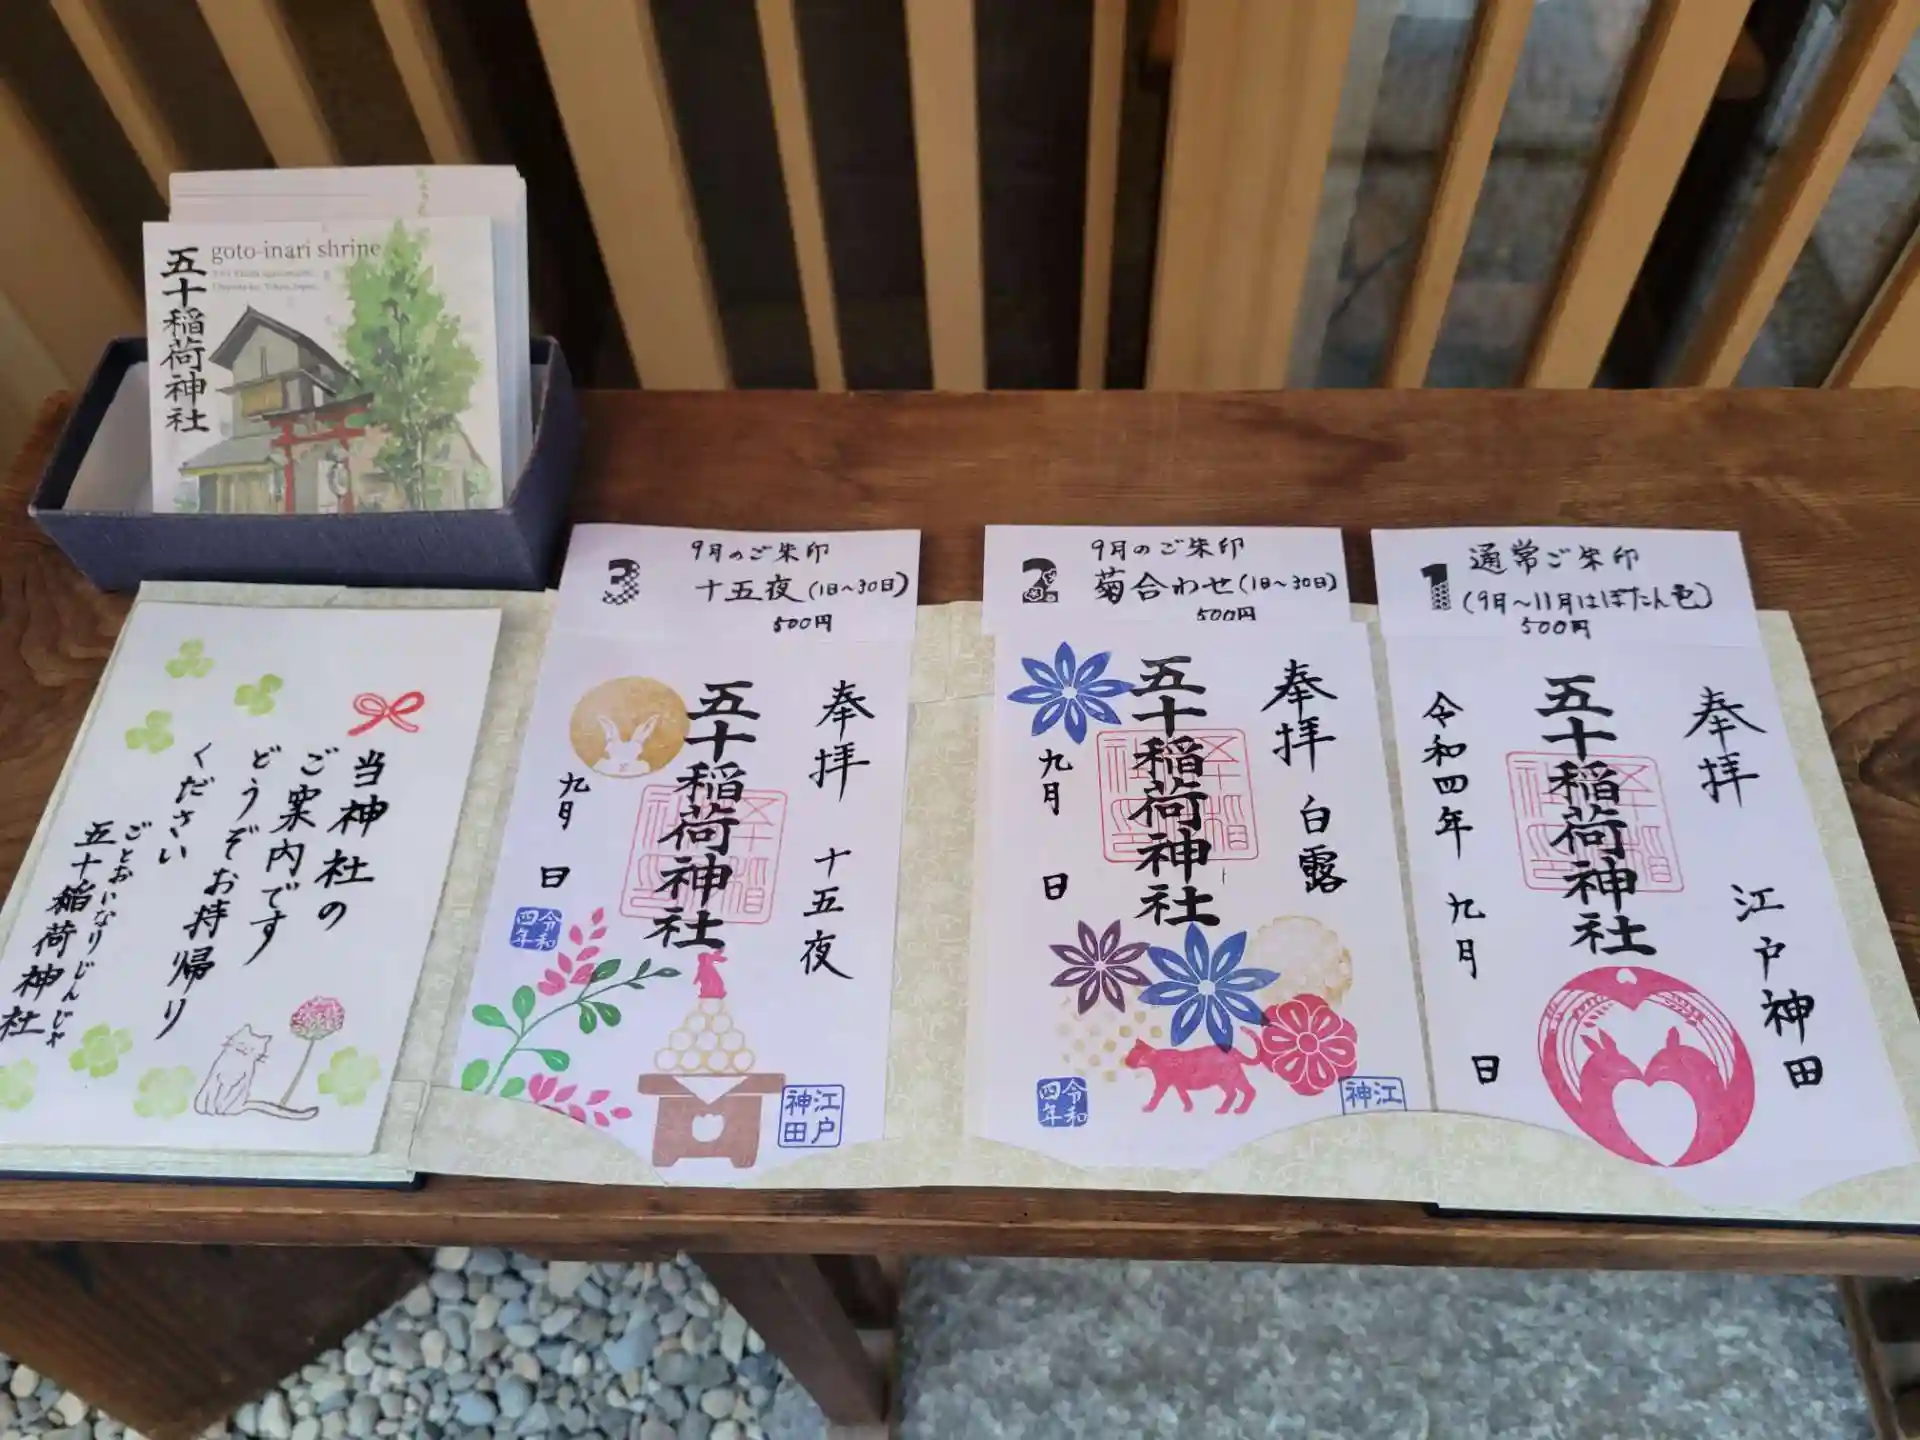 goto-inari shrine
五十稲荷神社
当神社の
ご案内です
どうぞお持帰り
ください
ごとおいなりじんじゃ
五十稲荷神社
3
9月のご朱印
十五夜(1日~30日)
500円
奉拝 十五夜
五十稲荷神社
九月 日
令和
四年
江戸
神田
2
9月のご朱印
菊合わせ(1日~30日)
500円
奉拝 白露
五十稲荷神社
九月 日
令和
四年
江
神
1
通常ご朱印
(9月~11月はぼたん色)
500円
奉拝 江戸神田
五十稲荷神社
令和四年 九月 日